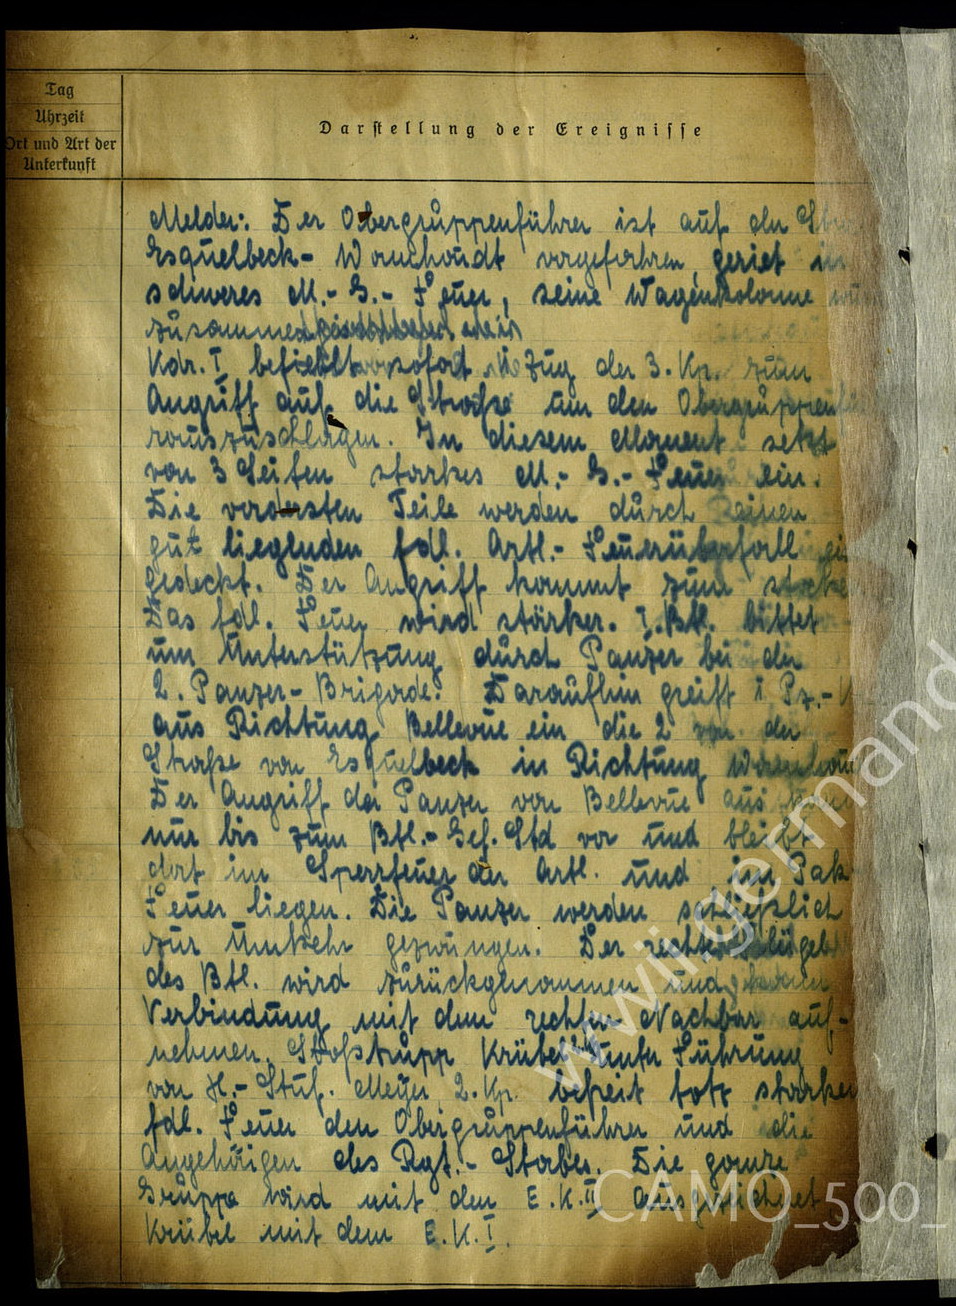 Tag
Uhrzeit
Ort und Art der
Unterkunft
Darstellung der Ereignisse
Melder: Der Obergruppenführer ist auf der
Esquelbeck- Wormhoudt vorgefahren, geriet in
schweres M.-G.-Feuer, seine Wagenkolonne
zusammengeschossen.
Kdr. I befiehlt sofort Zug der 3. Kp. zum
Angriff auf die Straße um den Obergruppenfü
rauszuschlagen. In diesem Moment setzt
von 3 Seiten starkes M.-G.-Feuer ein.
Die vordersten Teile werden durch
gut liegenden fdl. Artl.-Feuerüberfall ein
gedeckt. Der Angriff kommt zum
Das fdl. Feuer wird stärker. I. Btl. bittet
um Unterstützung durch Panzer bei der
2. Panzer-Brigade. Daraufhin greift 1 Pz.-K
aus Richtung Bellevue ein die 2 von der
Straße von Esquelbeck in Richtung Wormhou
Der Angriff der Panzer von Bellevue aus
nur bis zum Btl.-Gef. Std vor und bleibt
dort im Sperrfeuer der Artl. und im Pak-
Feuer liegen. Die Panzer werden schließlich
zur Umkehr gezwungen. Der rechte Flügel
des Btl. wird zurückgenommen und
Verbindung mit dem rechten Nachbar auf-
nehmen. Stoßtrupp Krübel unter Führung
von H.-Stuf. Meyer 2. Kp. befreit totz starken
fdl. Feuer den Obergruppenführer und die
Angehörigen des Rgt.-Stabes. Die ganze
Gruppe wird mit dem E.K.II ausgezeichnet
Krübel mit dem E.K.I.
www.germand
CAMO_500_